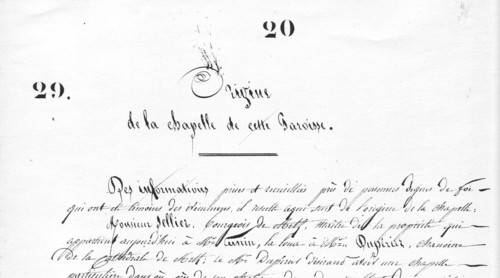 20
29.
Origine
de la chapelle de cette Paroisse.
Des informations prises et recueillies près de personnes dignes de foi
qui ont été témoins des évènemens, il résulte ce qui suit de l'origine de la chapelle.
Monsieur Sellier, bourgeois de Metz, maître de la propriété qui
appartient aujourd'hui à Mr la loua à Mr Duprier, chanoine
de la Cathédrale de Metz, le Mr Duprier désirant avoir une chapelle
particulière dans